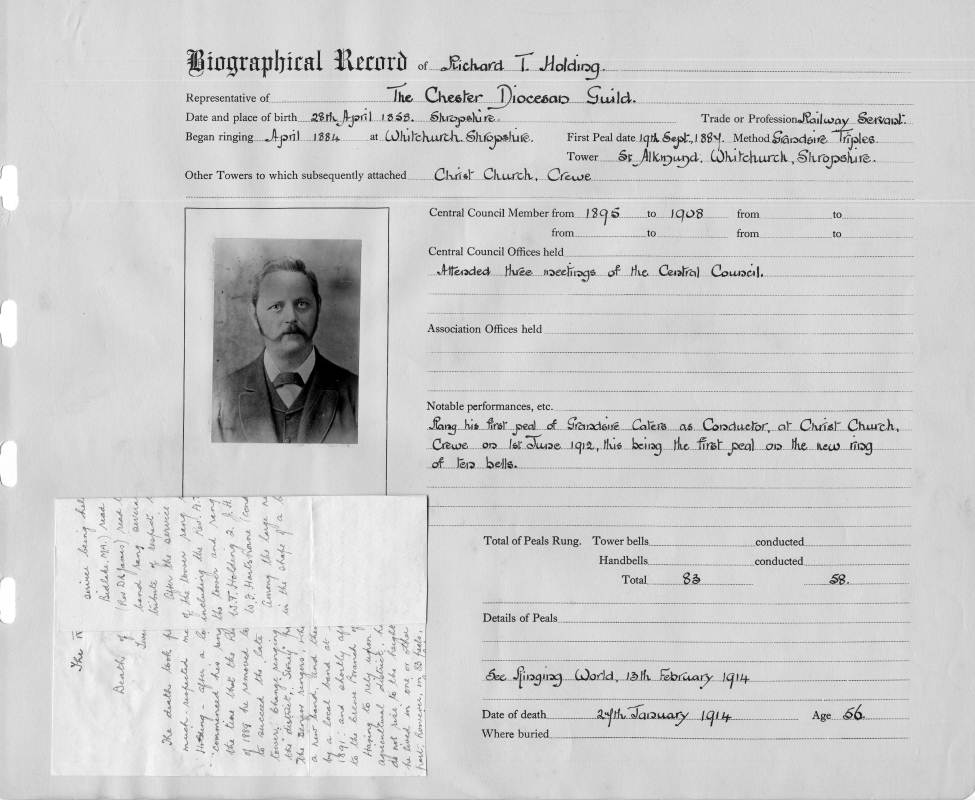 Biographical Record of Richard T. Holding.
Representative of The Chester Diocesan Guild.
Date and place of birth 28th April 1858. Shropshire. Trade or Profession Railway Servant.
Began ringing April 1884 at Whitchurch. Shropshire. First Peal date 19th Sept., 1887. Method Grandsire Triples.
Tower St Alkmund, Whitchurch, Shropshire.
Other Towers to which subsequently attached Christ Church, Crewe
Central Council Member from 1895 to 1908 from to
from to from to
Central Council Offices held
Attended three meetings of the Central Council.
Association Offices held
Notable performances, etc.
Rang his first peal of Grandsire Caters as Conductor, at Christ Church,
Crewe on 1st June 1912, this being the first peal on the new ring
of ten bells.
Total of Peals Rung. Tower bells conducted
Handbells conducted
Total 83 58.
Details of Peals
See Ringing World, 13th February 1914
Date of death 27th January 1914 Age 56.
Where buried
service being deli
Bidlake. MA) read
(Rev D.H. James) read
band rang several
tribute of respect
After the service
of the tower rang
including the Rev. A.
the tower and rang
W.T. Holding 2. J.H
W.F. Hartshorne (cond
Among the large
in the shape of a b
The R
Death of
The death took p
much respected me
Holding - after a lo
commenced his ring
the time that the
of 1888 he removed to
to succeed the late
tower; Change ringing
the district,
The Senior ringers,
a new band, and then
by a local band at
1891: and shortly aft
to the Crewe Branch of
Having to rely upon
agricultural district, he
do not run to the height
he lived in one or other
peal, however, in 83 peals,